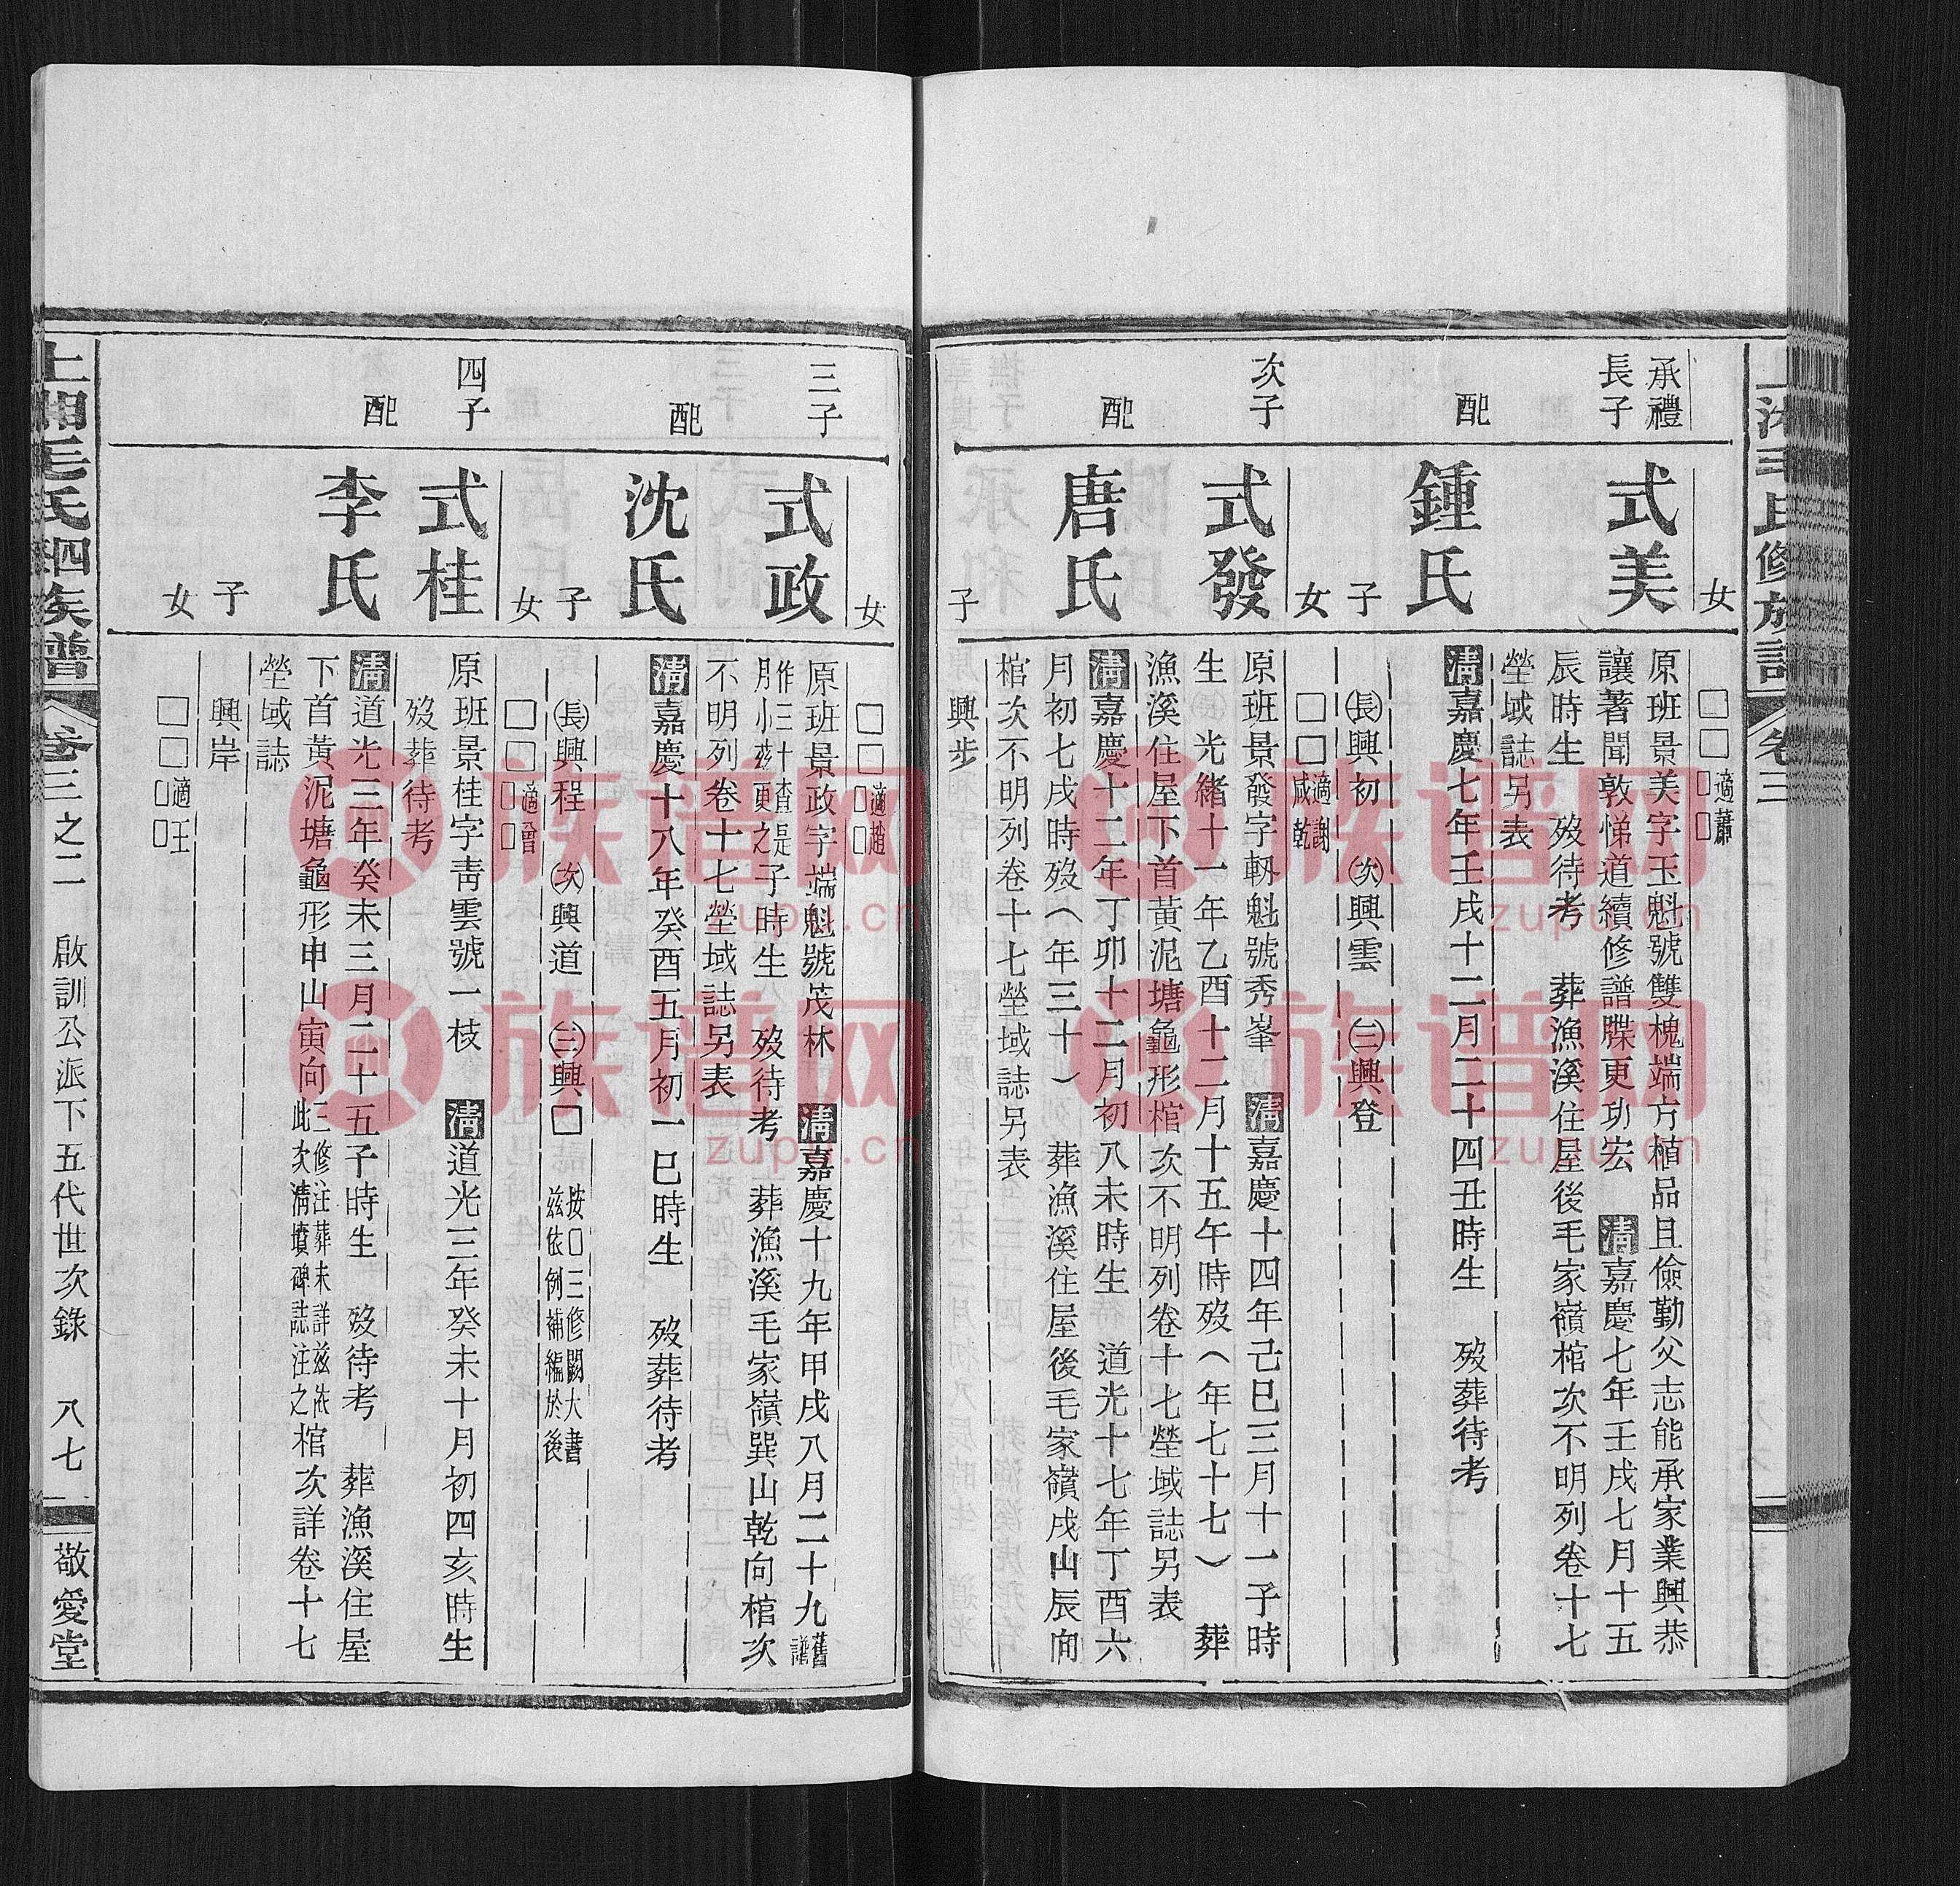 女
□□適蕭□□
承禮長子
式美
原班景美字玉魁號雙槐端方植品且儉勤父志能承家業興恭
讓著聞敦悌道續修譜牒更功宏 清嘉慶七年壬戌七月十五
辰時生 歿待考 葬漁溪住屋後毛家嶺棺次不明列卷十七
塋域誌另表
配
鍾氏
清嘉慶七年壬戌十二月二十四丑時生 歿葬待考
子
㊀長興初 次興雲 三興登
女
□□適謝咸乾
次子
式發
原班景發字軔魁號秀峯 清嘉慶十四年己巳三月十一子時
生 光緒十一年乙酉十二月十五午時歿(年七十七) 葬
漁溪住屋下首黃泥塘龜形棺次不明列卷十七塋域誌另表
配
唐氏
清嘉慶十二年丁卯十二月初八未時生 道光十七年丁酉六
月初七戌時歿(年三十) 葬漁溪住屋後毛家嶺戌山辰向
棺次不明列卷十七塋域誌另表
子
興步
女
□□適趙□□
三子
式政
原班景政字端魁號茂林 清嘉慶十九年甲戌八月二十九舊譜
作三十查是月小茲更之子時生 歿待考 葬漁溪毛家嶺巽山乾向棺次
不明列卷十七塋域誌另表
配
沈氏
清嘉慶十八年癸酉五月初一巳時生 歿葬待考
子
長興程 次興道 三興□ 按□□三修闕大書茲依例補編於後
女
□□適曾□□
四子
式桂
原班景桂字青雲號一枝 清道光三年癸未十月初四亥時生
歿葬待考
配
李氏
清道光三年癸未三月二十五子時生 歿待考 葬漁溪住屋
下首黃泥塘龜形申山寅向三修注葬未詳茲依此次清墳碑誌注之棺次詳卷十七
塋域誌
子
興岸
女
□□適王□□
上湘毛氏四修族譜 卷三之二 啟訓公派下五代世次錄 八七 敬愛堂
族譜网
zupu.cn